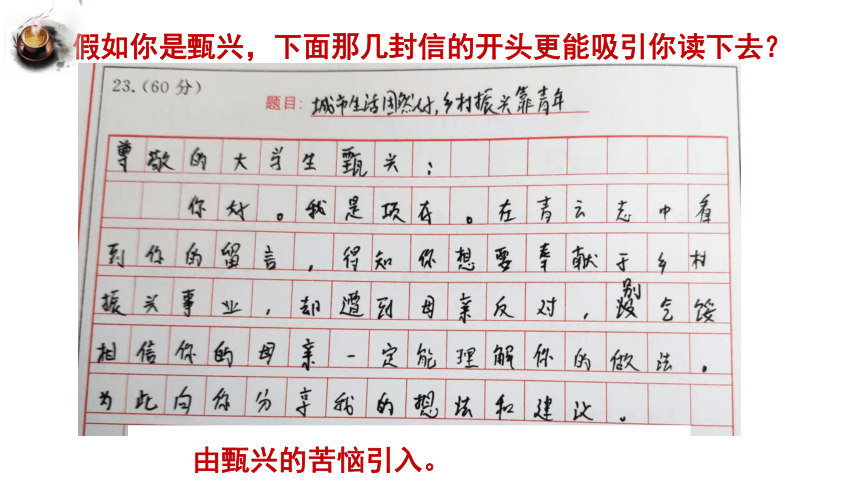 假如你是甄兴，下面那几封信的开头更能吸引你读下去？
23.（60分）
题目：城市生活固然好，乡村振兴靠青年
尊敬的大学生甄兴：
你好。我是项存。在青云志中看
到你的留言，得知你想要奉献于乡村
振兴事业，却遭到母亲反对，别气馁
相信你的母亲一定能理解你的做法。
为此向你分享我的想法和建议。
由甄兴的苦恼引入。